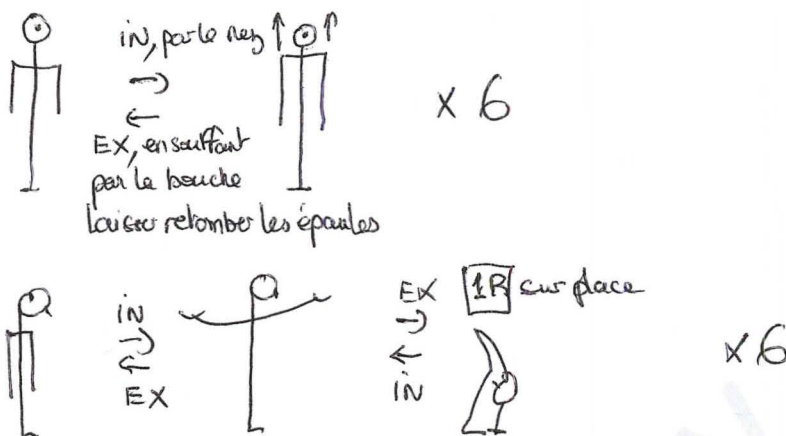 iN, par le nez
EX, en soufflant
par la bouche
laisser retomber les épaules
x 6
iN
EX
EX
iN
1R sur place
x 6